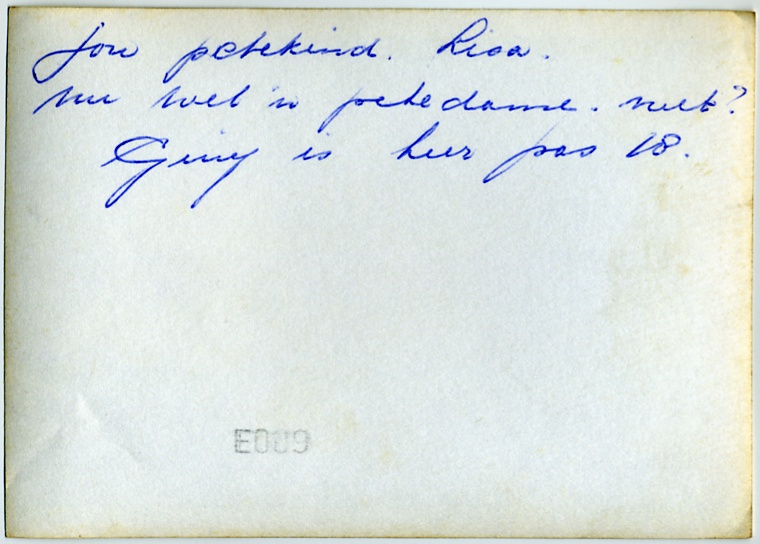 jou petekind. Lisa.
nu wel 'n petedame. niet?
Giny is hier pas 18.
E009